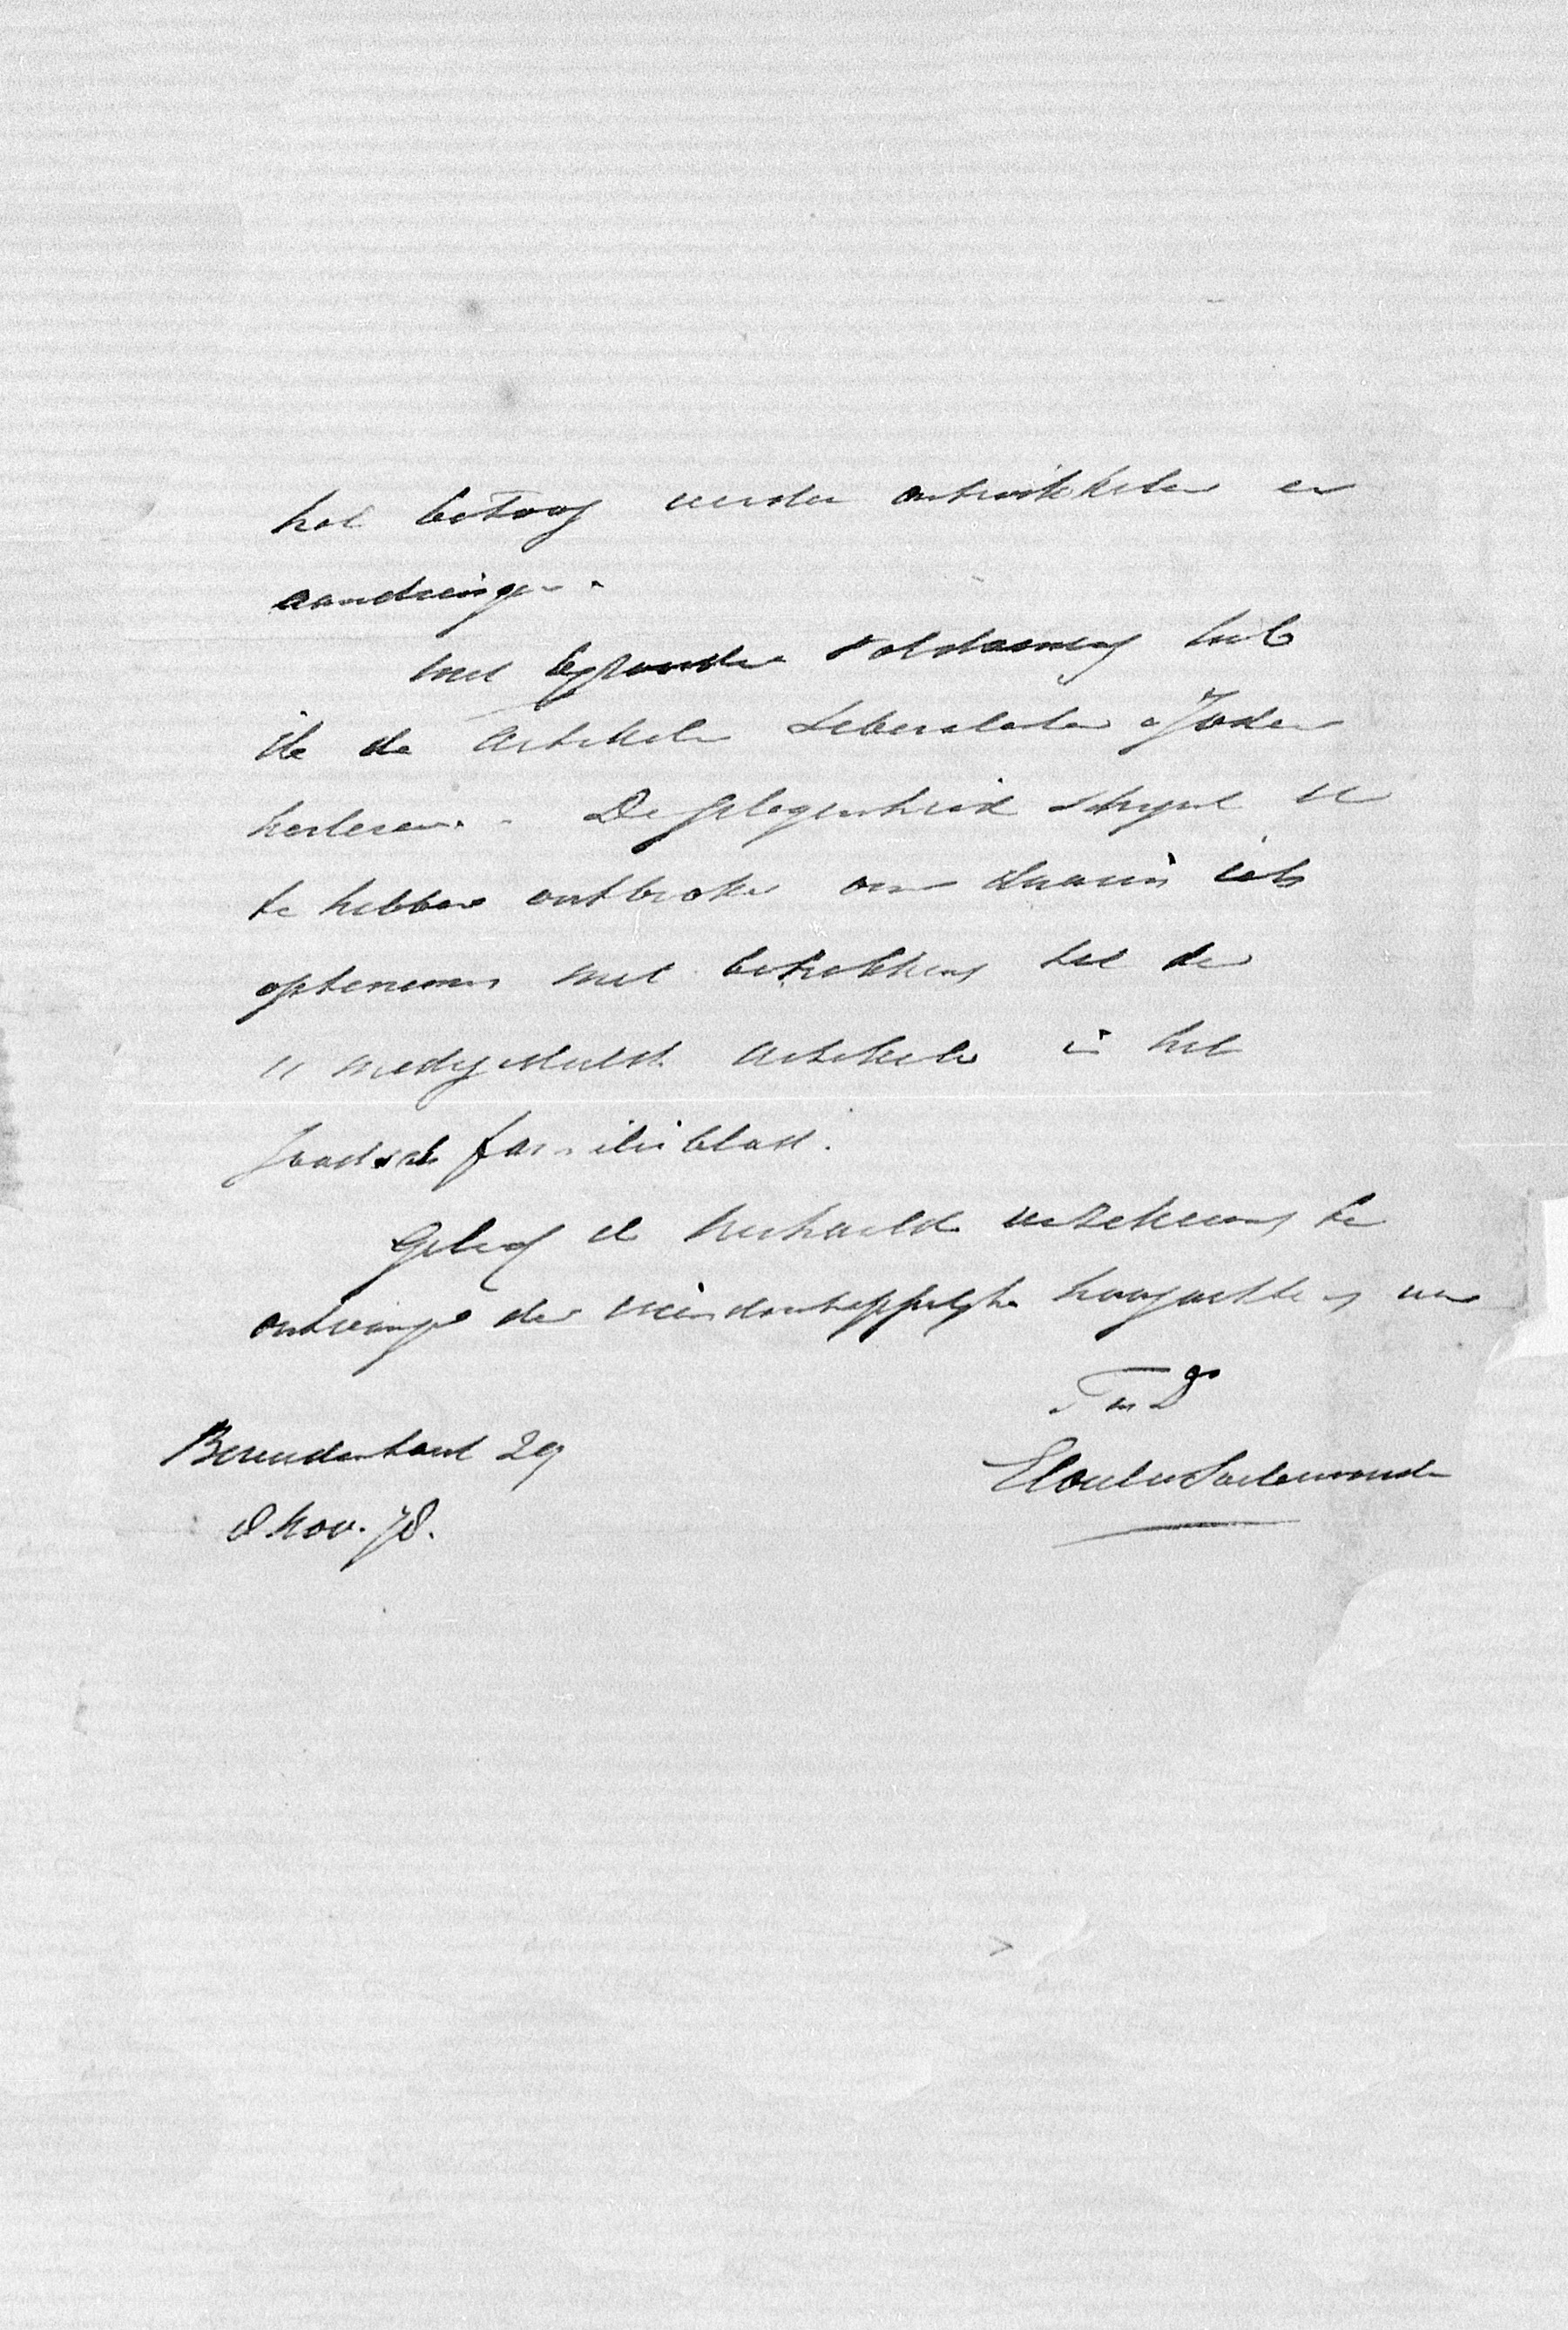 het betoog verder ontwikkelen en
aandringen.
Met bijzondere voldoening heb
ik de artikelen Liberalisten & Joden
herlezen. - De gelegenheid schijnt U
te hebben ontbroken om daarin iets
optenemen met betrekking tot de
U medegedeelde artikelen in het
Joodsch familieblad.
Gelieve de herhaalde verzekering te
ontvangen der vriendschappelijke hoogachting van
T en D
Elout v Soeterwoude
Bezuidenhout 29
8 Nov. 78.